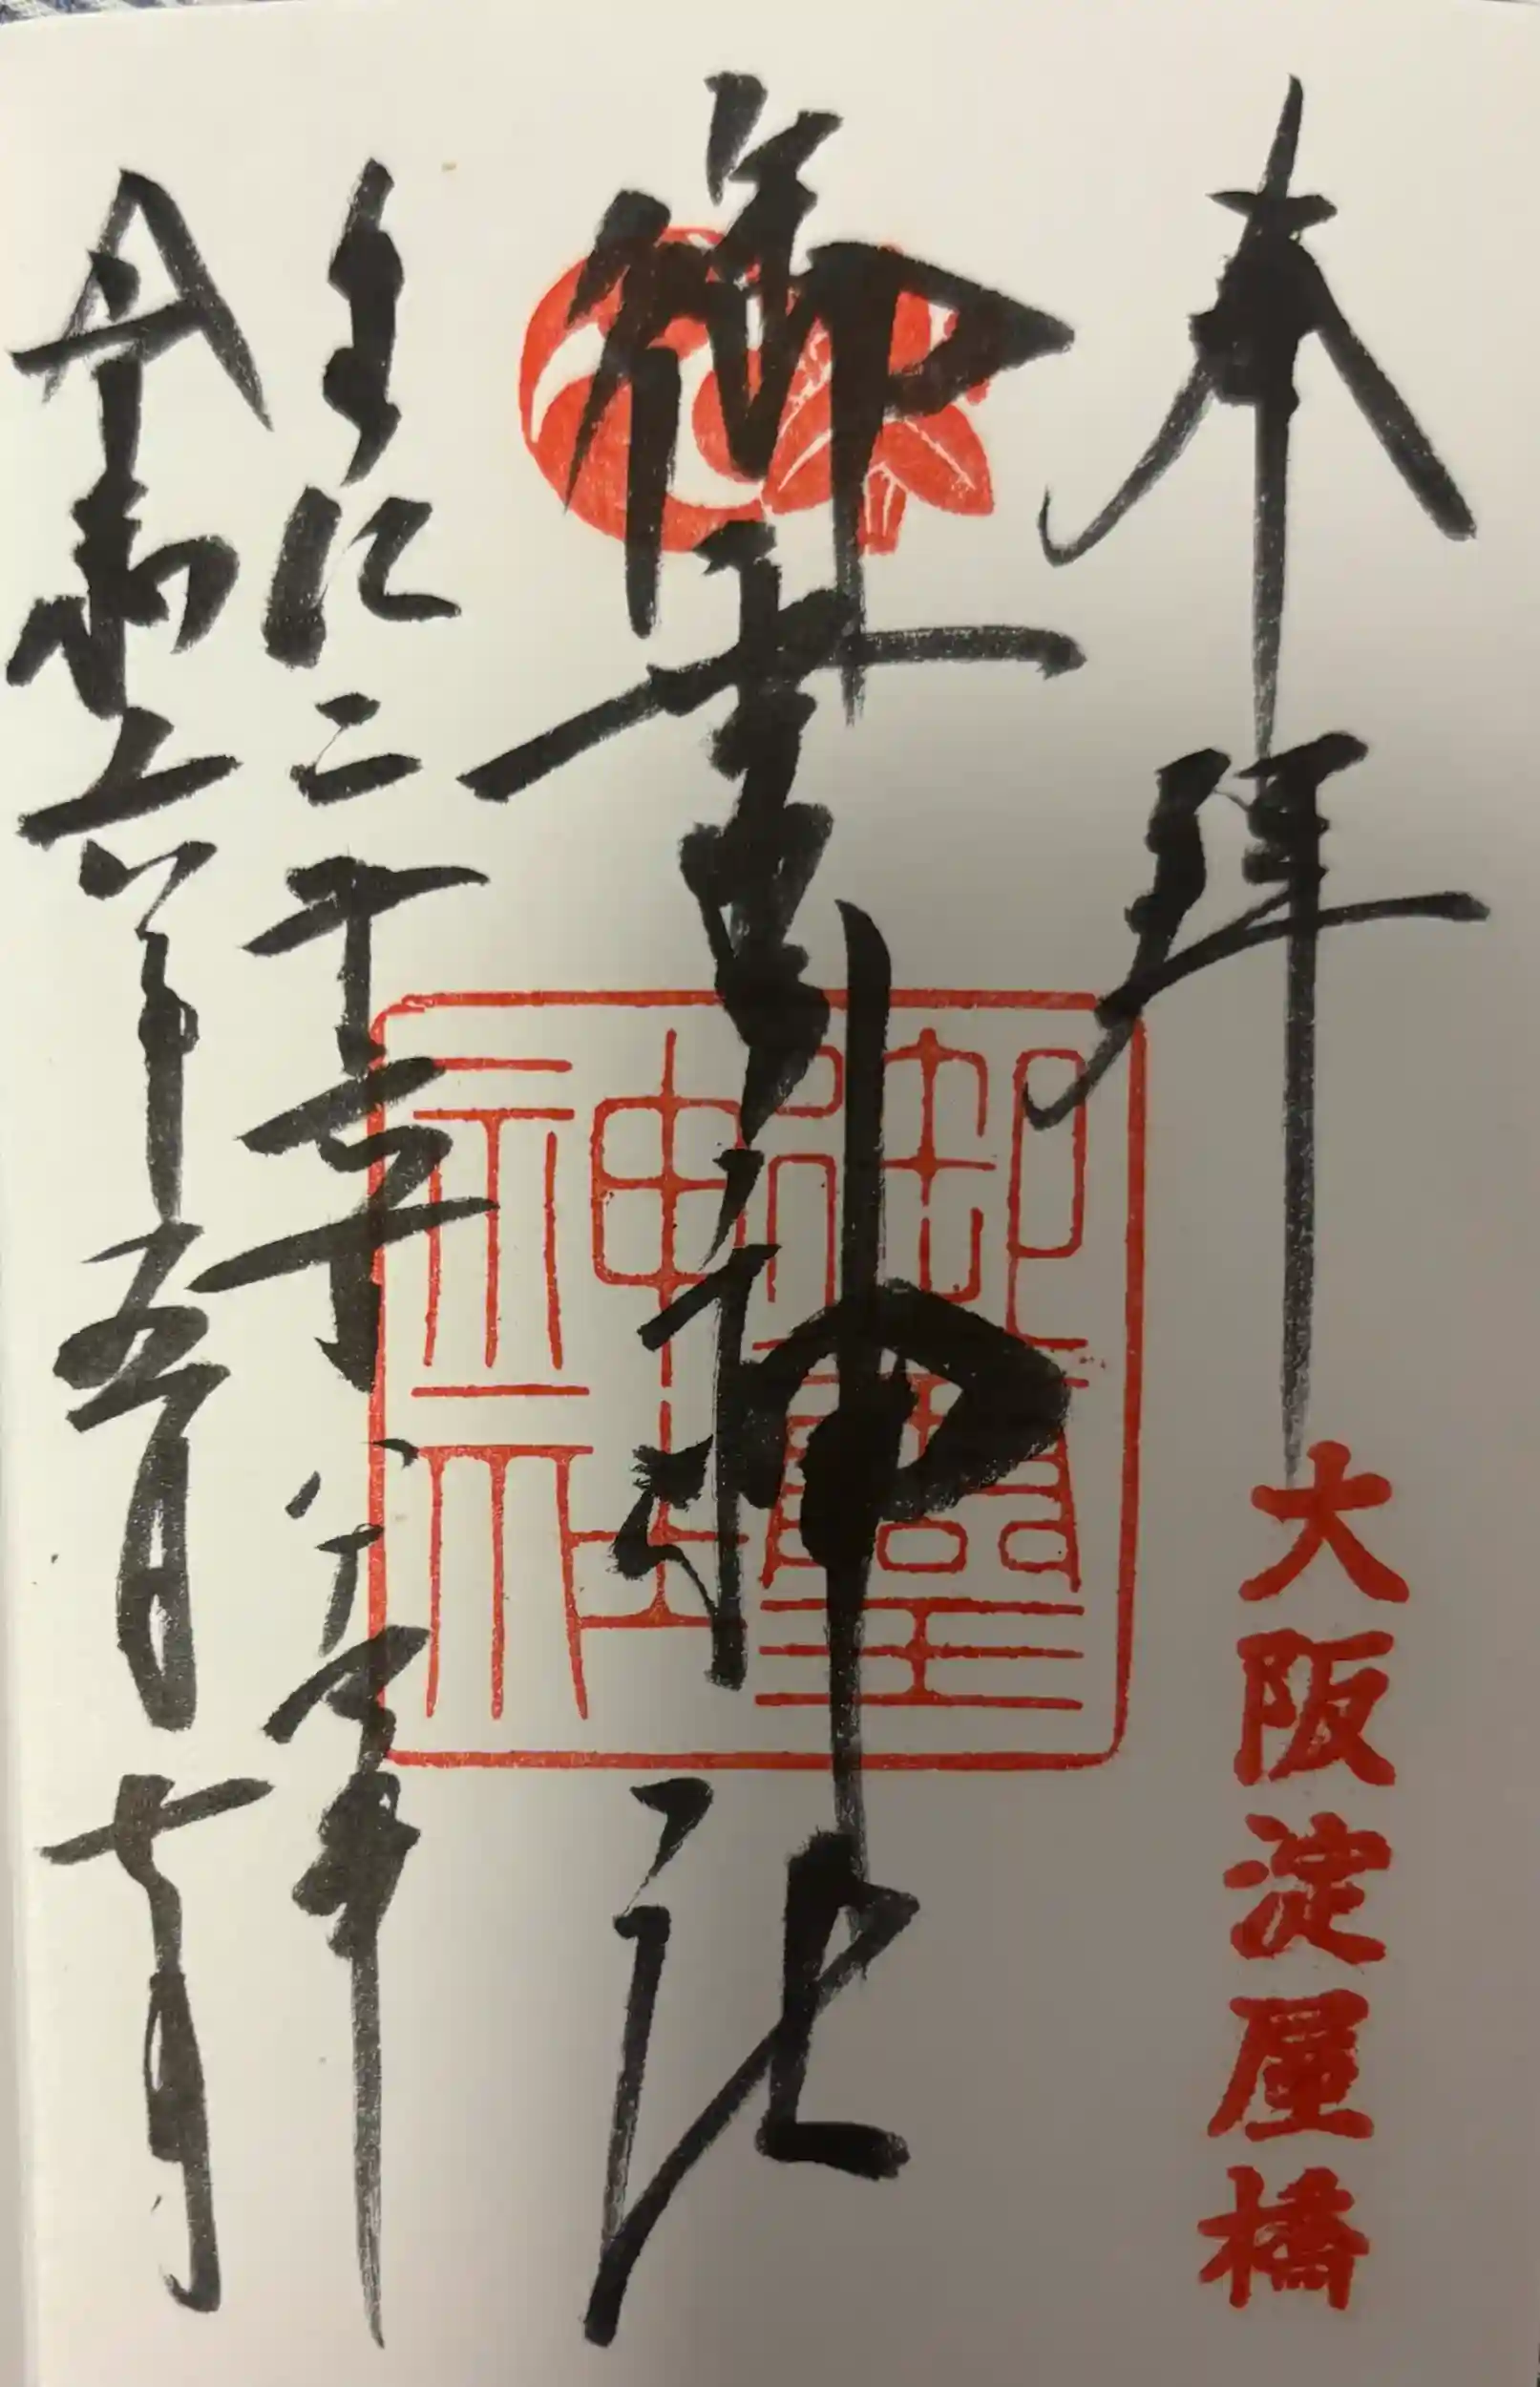 奉拝
大阪淀屋橋
御霊神社
御靈神社
皇紀二千六百八十四年
令和六年五月七日